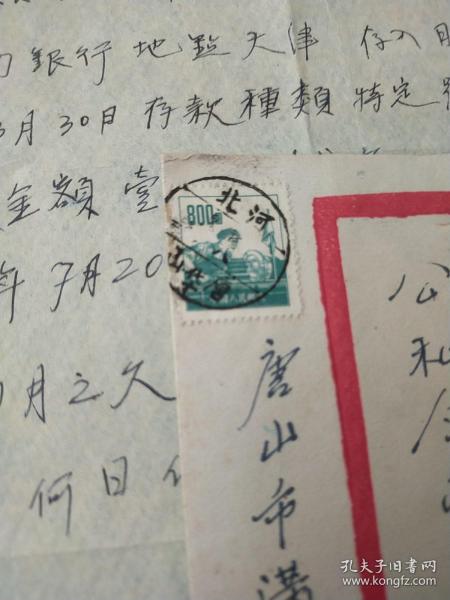 銀行地點天津 存入日
3月30日存款種類特定
金額壹
年7月20
月之久
何日
800
北河
山
唐山市满
公私合
孔夫子旧书网
www.kongfz.com